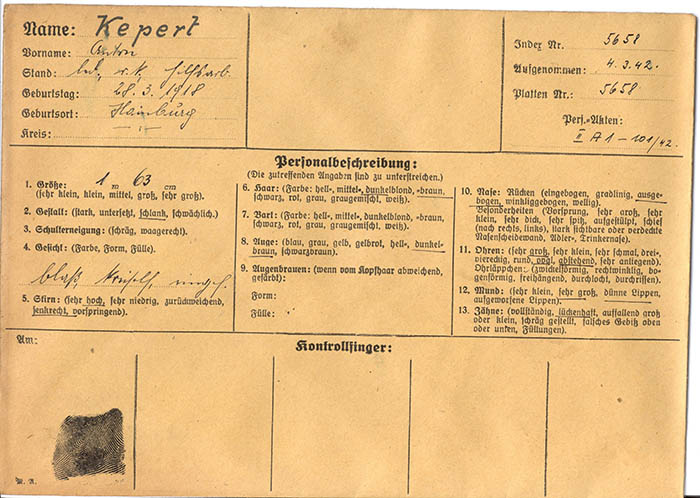 Name: Kepert
Vorname: Anton
Stand: led. r. k. Hilfsarb.
Geburtstag: 28.3.1918
Geburtsort: Hainburg
Kreis: — " —
Index Nr. 5658
Aufgenommen: 4.3.42.
Platten Nr.: 5658
Pers.-Akten:
II A1-101/42.
Personalbeschreibung:
(Die zutreffenden Angaben sind zu unterstreichen.)
1. Größe: 1 m 63 cm
(sehr klein, klein, mittel, groß, sehr groß).
2. Gestalt: (stark, untersetzt, schlank, schwächlich).
3. Schulterneigung: (schräg, waagerecht).
4. Gesicht: (Farbe, Form, Fülle).
blaß
5. Stirn: (sehr hoch, sehr niedrig, zurückweichend,
senkrecht, vorspringend).
6. Haar: (Farbe: hell-, mittel-, dunkelblond, -braun,
schwarz, rot, grau, graugemischt, weiß).
7. Bart: (Farbe: hell-, mittel-, dunkelblond, -braun,
schwarz, rot, grau, graugemischt, weiß).
8. Auge: (blau, grau, gelb, gelbrot, hell-, dunkel-
braun, schwarzbraun).
9. Augenbrauen: (wenn vom Kopfhaar abweichend,
gefärbt):
Form:
Fülle:
10. Nase: Rücken (eingebogen, gradlinig, ausge-
bogen, winkliggebogen, wellig).
Besonderheiten (Vorsprung, sehr groß, sehr
klein, sehr dick, sehr spitz, aufgestülpt, schief
(nach rechts, links), stark sichtbare oder verdeckte
Nasenscheidewand, Adler-, Trinkernase).
11. Ohren: (sehr groß, sehr klein, sehr schmal, drei-,
viereckig, rund, oval, abstehend, sehr anliegend).
Ohrläppchen: (zwickelförmig, rechtwinklig, bo-
genförmig, freihängend, durchlocht, durchrissen).
12. Mund: (sehr klein, sehr groß, dünne Lippen,
aufgeworfene Lippen).
13. Zähne: (vollständig, lückenhaft, auffallend groß
oder klein, schräg gestellt, falsches Gebiß oben
oder unten, Füllungen).
Am:
Kontrollfinger:
M. A.